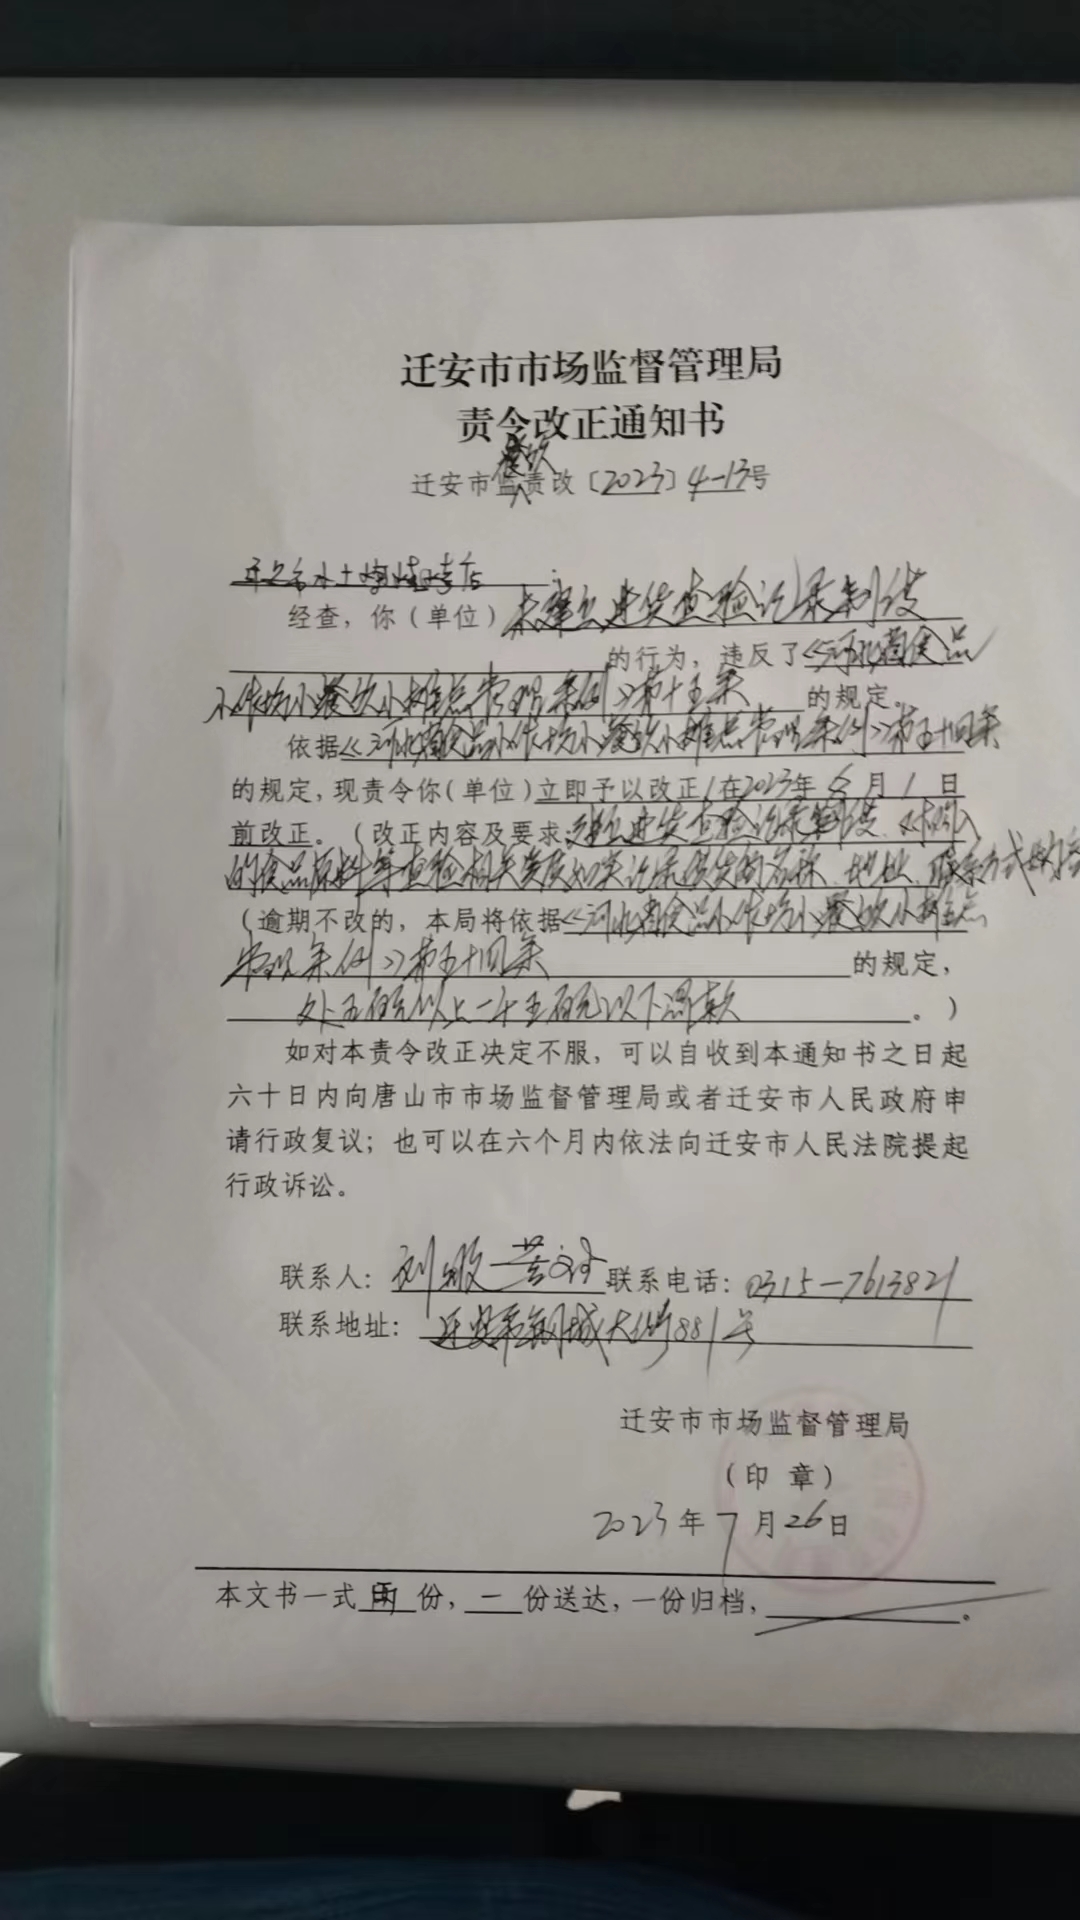 迁安市市场监督管理局
责令改正通知书
餐饮
迁安市监责改〔2023〕4-13号
经查，你（单位）未建立进货查验记录制度
的行为，违反了《河北省食品
小作坊小餐饮小摊点管理条例》第十五条 的规定。
依据《河北省食品小作坊小餐饮小摊点管理条例》第五十四条
的规定，现责令你（单位）立即予以改正/在2023年8月1日
前改正。（改正内容及要求：建立进货查验记录制度、对购入
的食品原料等查验相关资质如实记录供货商名称、地址、联系方式等内容
（逾期不改的，本局将依据《河北省食品小作坊小餐饮小摊点
管理条例》第五十四条 的规定，
处五百元以上一千五百元以下罚款 。）
如对本责令改正决定不服，可以自收到本通知书之日起
六十日内向唐山市市场监督管理局或者迁安市人民政府申
请行政复议；也可以在六个月内依法向迁安市人民法院提起
行政诉讼。
联系人： 联系电话：0315-7613821
联系地址：迁安市钢城大街881号
迁安市市场监督管理局
（印 章）
2023年7月26日
本文书一式两份，一份送达，一份归档， 。